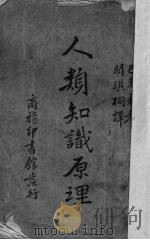 巴克萊著
關琪桐譯
人類知識原理
商務印書館發行